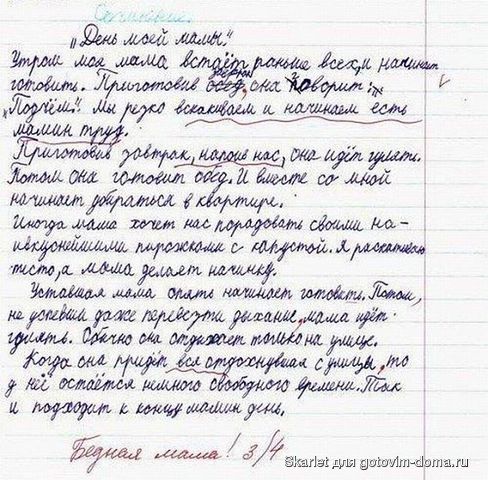 Сочинение.
„День моей мамы."
Утром моя мама встаёт раньше всех, и начинает
готовить. Приготовив завтрак обед, она говорит:
„Подъём". Мы резко вскакиваем и начинаем есть
мамин труд.
Приготовив завтрак, напоив нас, она идёт гулять.
Потом она готовит обед. И вместе со мной
начинает убираться в квартире.
Иногда мама хочет нас порадовать своими на-
ивкуснейшими пирожками с капустой. Я раскатываю
тесто, а мама делает начинку.
Уставшая мама опять начинает готовить. Потом,
не успевши даже перевезти дыхание, мама идёт
гулять. Обычно она отдыхает только на улице.
Когда она придёт вся отдохнувшая с улицы, то
у неё остаётся немного свободного времени. Так
и подходит к концу мамин день.
Бедная мама! 3/4
Skarlet для gotovim-doma.ru